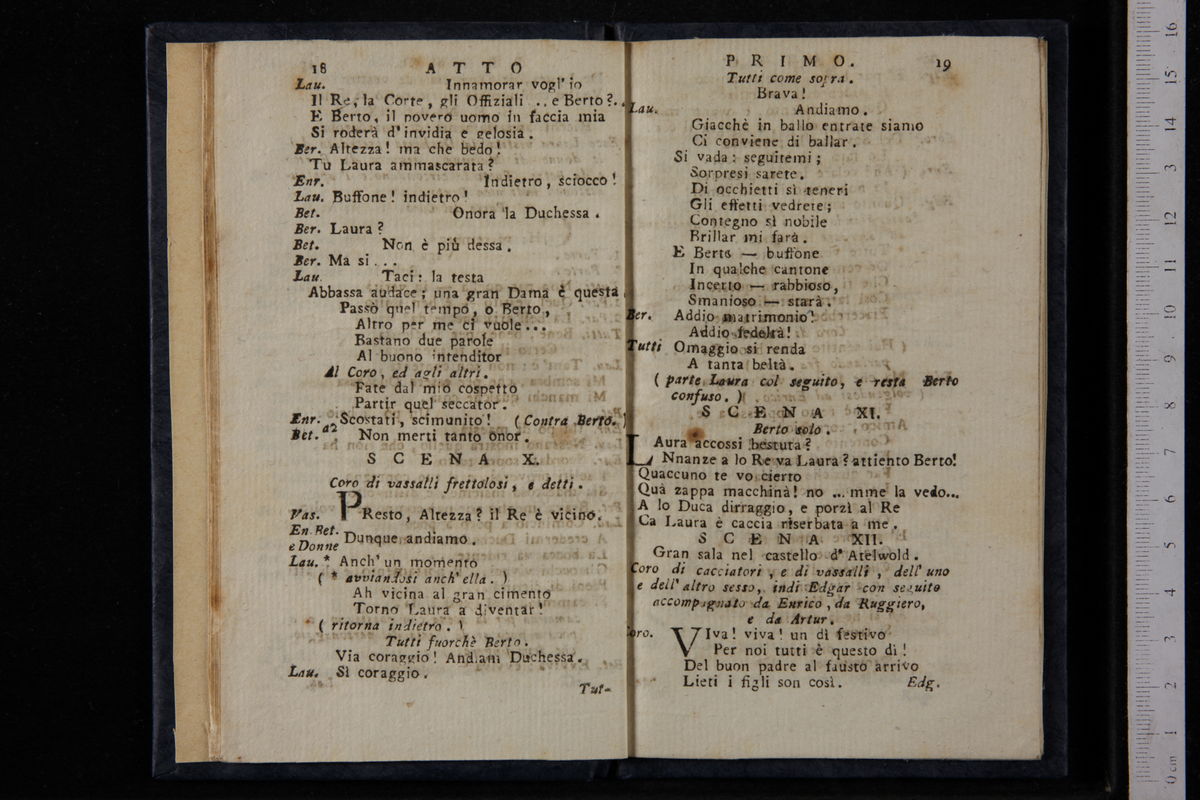 18 ATTO
Lau. Innamorar vogl' io
Il Re, la Corte, gli Offiziali .. e Berto?..
E Berto, il povero uomo in faccia mia
Si roderà d'invidia e gelosia.
Ber. Altezza! ma che bedo!
Tu Laura ammascarata?
Enr. Indietro, sciocco!
Lau. Buffone! indietro!
Bet. Onora la Duchessa.
Ber. Laura?
Bet. Non è più dessa.
Ber. Ma si...
Lau. Taci: la testa
Abbassa audace; una gran Dama è questa.
Passò quel tempo, o Berto,
Altro per me ci vuole...
Bastano due parole
Al buono intenditor
Al Coro, ed agli altri.
Fate dal mio cospetto
Partir quel seccator.
Enr. Scostati, scimunito! (Contra Berto.)
a2
Bet. Non merti tanto onor.
SCENA X.
Coro di vassalli frettolosi, e detti.
Vas. PResto, Altezza? il Re è vicino.
En. Bet.
e Donne Dunque andiamo.
Lau. * Anch' un momento
( * avviandosi anch' ella. )
Ah vicina al gran cimento
Torno Laura a diventar!
( ritorna indietro. )
Tutti fuorchè Berto.
Via coraggio! Andiam Duchessa.
Lau. Sì coraggio.
Tut-
PRIMO. 19
Tutti come sopra.
Brava!
Lau. Andiamo.
Giacchè in ballo entrate siamo
Ci conviene di ballar.
Si vada: seguitemi;
Sorpresi sarete.
Di occhietti sì teneri
Gli effetti vedrete;
Contegno sì nobile
Brillar mi farà.
E Berto — buffone
In qualche cantone
Incerto — rabbioso,
Smanioso — starà.
Ber. Addio matrimonio!
Addio fedeltà!
Tutti Omaggio si renda
A tanta beltà.
( parte Laura col seguito, e resta Berto
confuso. )
SCENA XI.
Berto solo.
LAura accossì bestuta?
Nnanze a lo Re va Laura? attiento Berto!
Quaccuno te vo cierto
Quà zappa macchinà! no ... mme la vedo...
A lo Duca dirraggio, e porzì al Re
Ca Laura è caccia riserbata a me.
SCENA XII.
Gran sala nel castello d' Atelwold.
Coro di cacciatori, e di vassalli, dell' uno
e dell' altro sesso, indi Edgar con seguito
accompagnato da Enrico, da Ruggiero,
e da Artur.
Coro. VIva! viva! un dì festivo
Per noi tutti è questo dì!
Del buon padre al fausto arrivo
Lieti i figli son così. Edg.